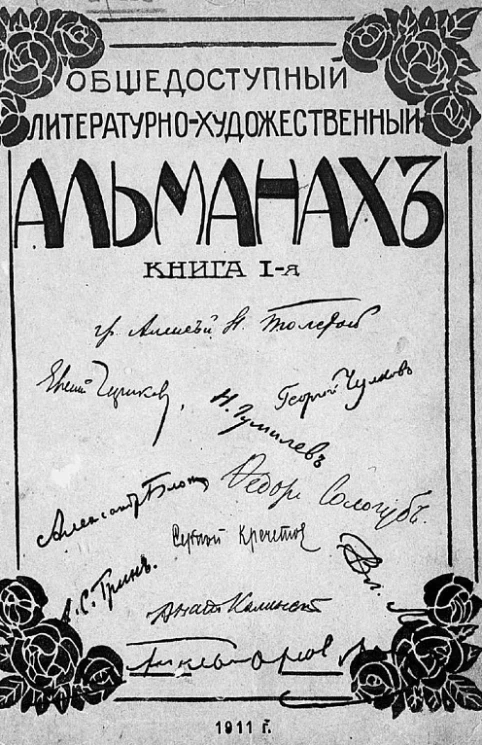 ОБЩЕДОСТУПНЫЙ
ЛИТЕРАТУРНО-ХУДОЖЕСТВЕННЫЙ
АЛЬМАНАХЪ
КНИГА I-я
гр Алексѣй Н. Толстой
Евгений Чириков,
Георгий Чулковъ
Н. Гумилевъ
Александръ Блокъ
Ѳедоръ Сологубъ.
Сергѣй Кречетов
А. С. Гринъ.
Анат Каменскі
1911 г.